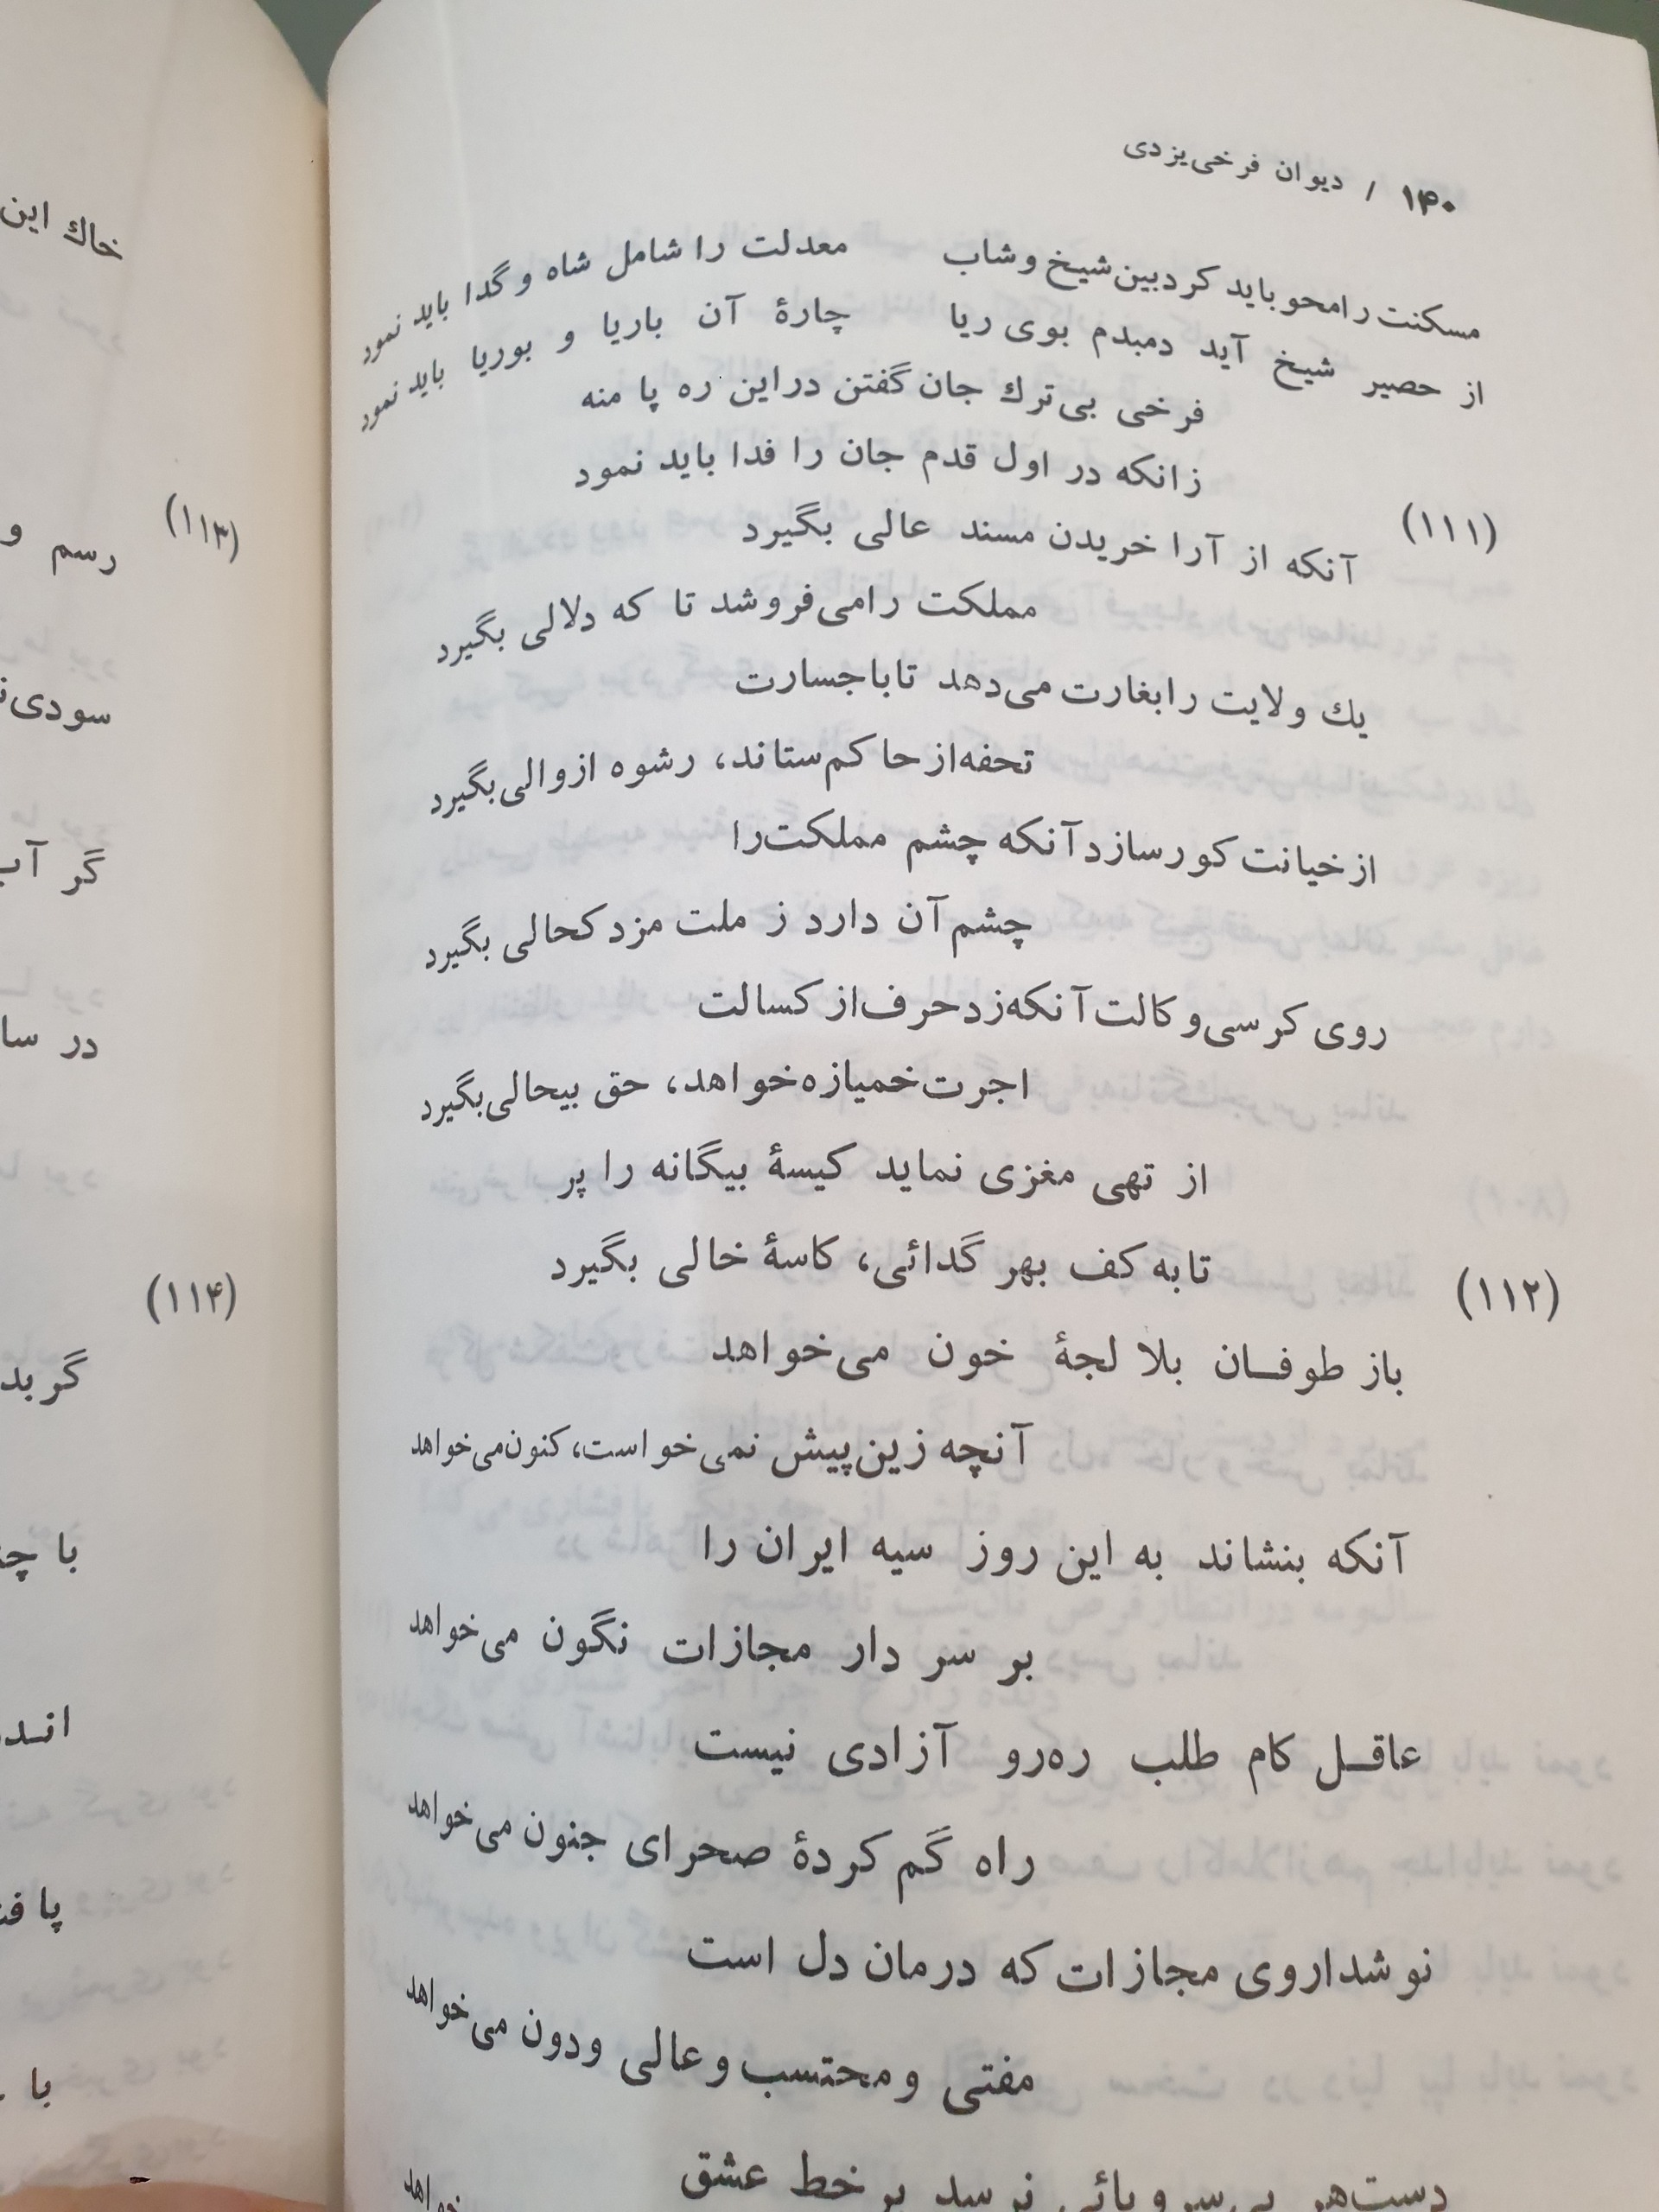 ۱۴۰ / دیوان فرخی‌یزدی
مسکنت را محو باید کرد بین شیخ و شاب    معدلت را شامل شاه و گدا باید نمود
از حصیر شیخ آید دمبدم بوی ریا    چارهٔ آن باریا و بوریا باید نمود
فرخی بی‌ترك جان گفتن در این ره پا منه
زانکه در اول قدم جان را فدا باید نمود
(۱۱۱)
آنکه از آرا خریدن مسند عالی بگیرد
مملکت را می‌فروشد تا که دلالی بگیرد
یك ولایت را بغارت می‌دهد تا با جسارت
تحفه از حاکم ستاند، رشوه از والی بگیرد
از خیانت کور سازد آنکه چشم مملکت را
چشم آن دارد ز ملت مزد کحالی بگیرد
روی کرسی وکالت آنکه زد حرف از کسالت
اجرت خمیازه خواهد، حق بیحالی بگیرد
از تهی مغزی نماید کیسهٔ بیگانه را پر
تا به کف بهر گدائی، کاسهٔ خالی بگیرد
(۱۱۲)
باز طوفان بلا لجهٔ خون می‌خواهد
آنچه زین پیش نمی‌خواست، کنون می‌خواهد
آنکه بنشاند به این روز سیه ایران را
بر سر دار مجازات نگون می‌خواهد
عاقل کام طلب ره‌رو آزادی نیست
راه گم کردهٔ صحرای جنون می‌خواهد
نوشداروی مجازات که درمان دل است
مفتی و محتسب و عالی و دون می‌خواهد
دست هر بی‌سر و پائی نرسد بر خط عشق
خواهد
خاك این
(۱۱۳)
رسم و
گر آب
در سا
(۱۱۴)
با
با